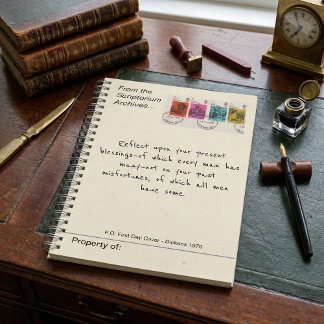 From the
Scriptorium
Archives...
Reflect upon your present
blessings-of which every man has
many-not on your past
misfortunes, of which all men
have some.
P.O. First Day Cover - Dickens 1970
Property of: